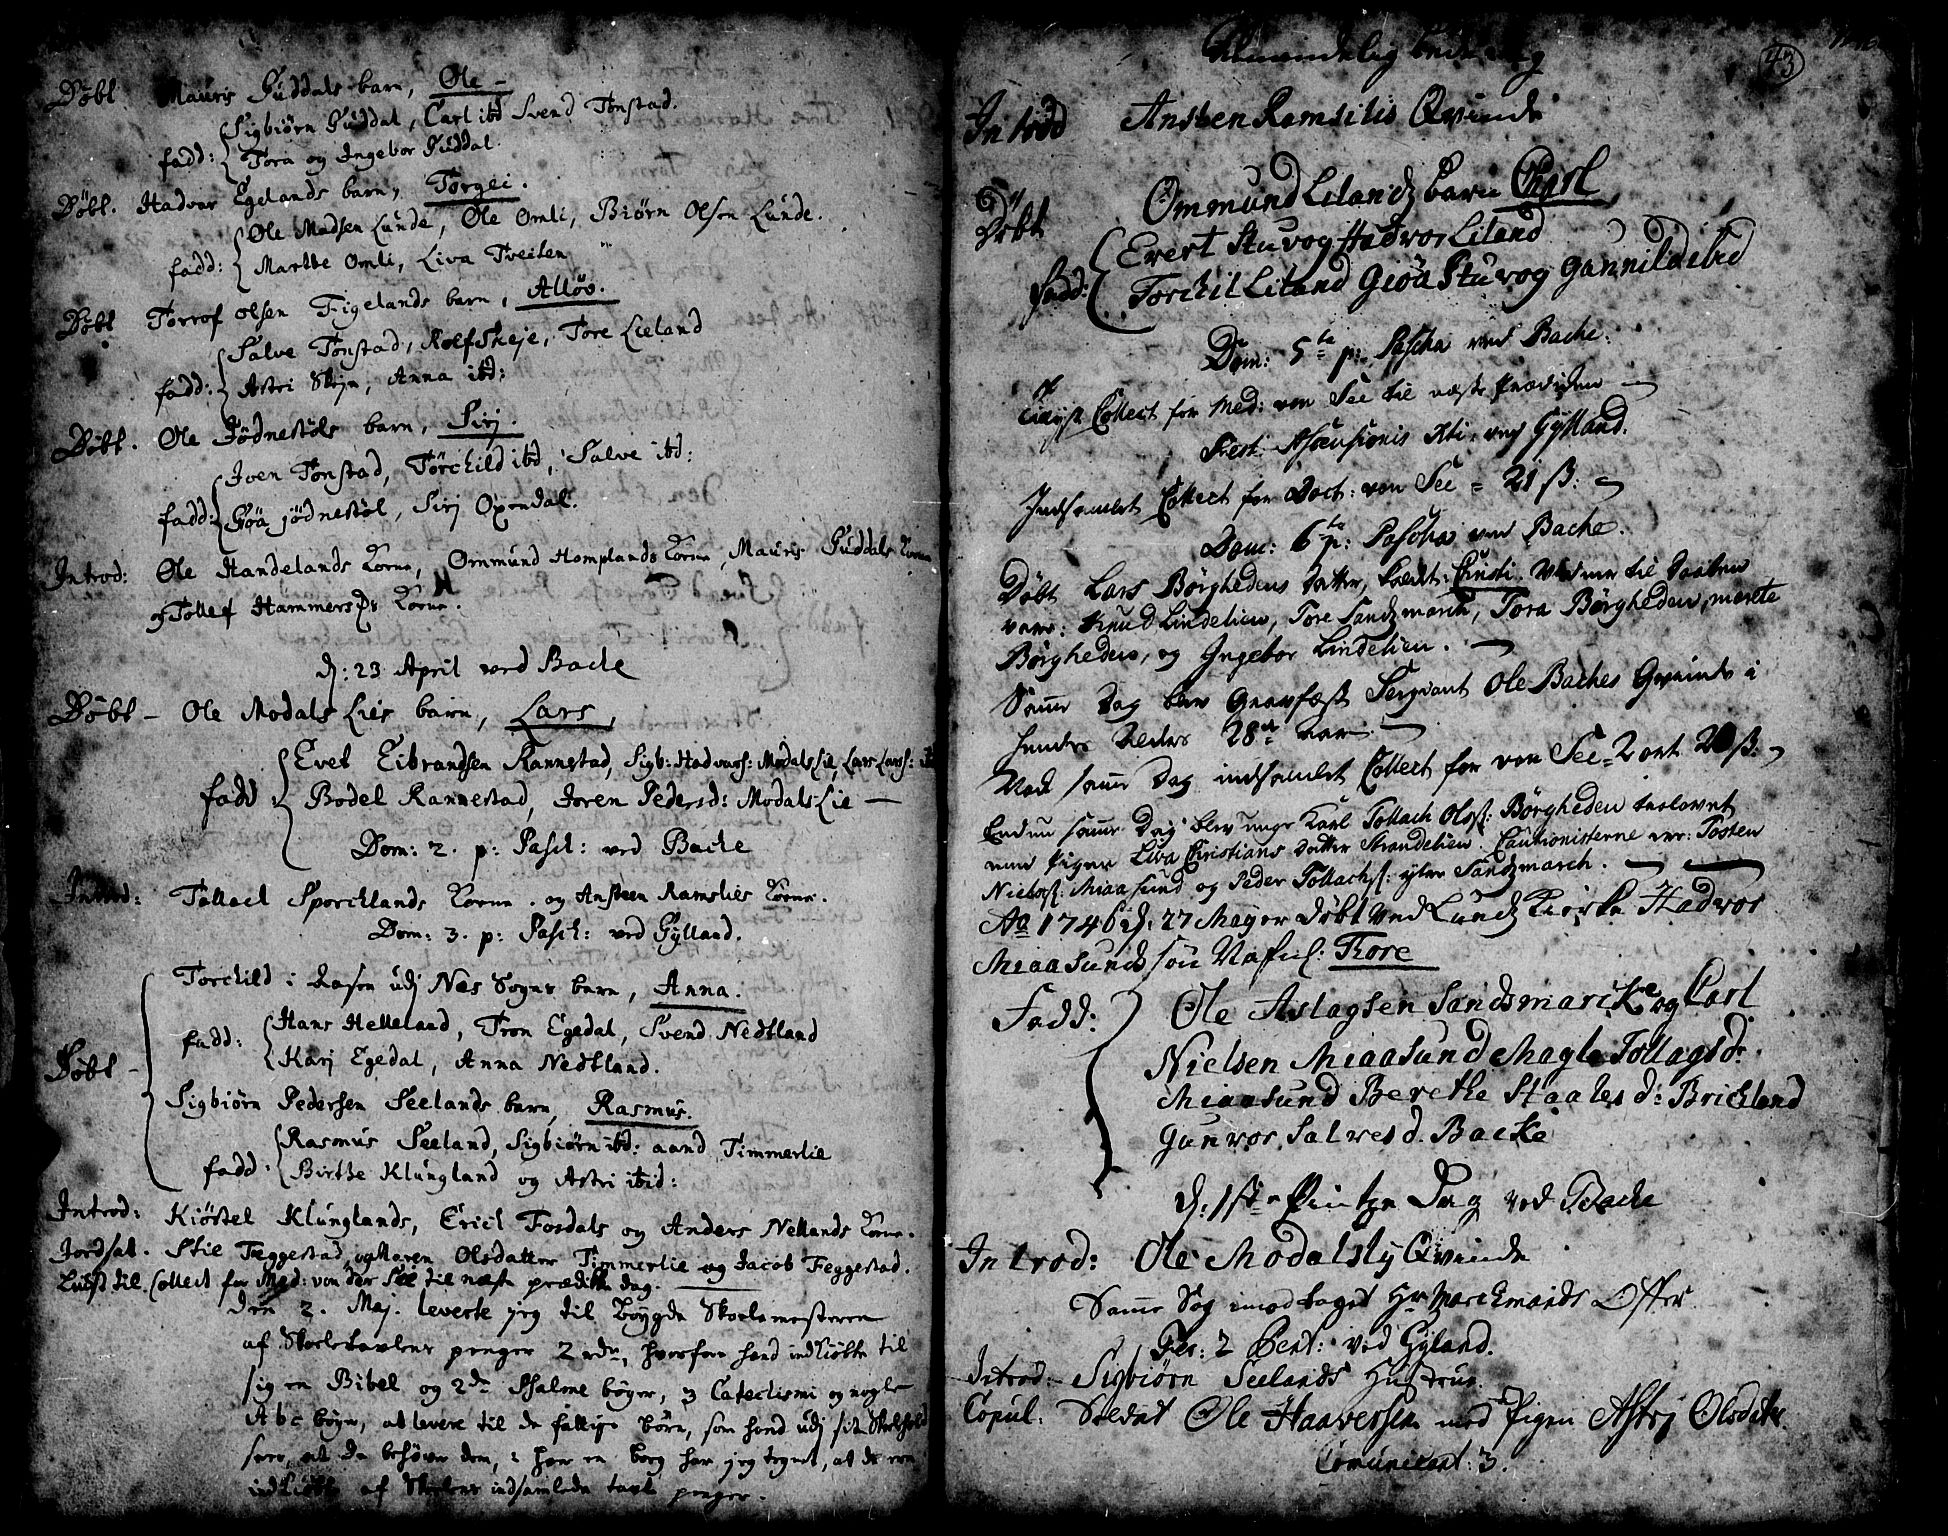 Döbt Mauris Guddals barn, Ole –
fadd: Sigbiörn Guddal, Carl ibd Svend Tonstad.
Tora og Ingebor Guddal.
Döbt. Hadvar Egelands barn, Torgei.
fadd: Ole Madsen Lunde, Ole Omli, Biörn Olsen Lunde.
Marthe Omli, Liva Tveiten
Döbt Torrof Olsen Figelands barn, Allöv.
fadd: Salve Tonstad, Rolf Skeje, Tore Lieland
Astri Skeje, Anna ibd:
Döbt. Ole Jödnestöls barn, Sirj.
fadd: Iven Tonstad, Törchild ibd, Salve ibd:
Göa jödnestöl, Sirj Oxendal.
Introd: Ole Handelands Kone, Ommund Homplands Kone, Mauris Guddals Kone
og Tollef Hammers Kone.
d: 23 April ved Bache
Döbt – Ole Modals Lies barn, Lars,
fadd: Evet Eibrandsen Rannestad, Sigb: Hadvars: Modals Lie, Lars Lars:
Bodel Rannestad, Joren Pedersd: Modals Lie —
Dom: 2. p: Pasch: ved Bache
Introd: Tollach Sporchlands Kone. og Ansteen Ramslies Kone.
Dom: 3. p: Pasch: ved Gylland.
Döbt – Torchild i Aasen udj Nes Sogns barn, Anna.
fadd: Hans Helleland, Tron Egedal, Svend Nedtland
Karj Egedal, Anna Nedtland.
Sigbiörn Pedersen Seelands barn, Rasmus.
fadd: Rasmus Seeland, Sigbiörn ibd: aand Timmerlie
Birthe Klungland og Astri ibid:
Introd: Kiöstel Klunglands, Erich Fosdals og Anders Netlands Kone.
Jordsat. Stie Feggestad og Maren Olsdatter Timmerlie og Jacob Feggestad.
Liust til Collect for Med: von der See til næste prædiken dag.
den 2. Maj. leverte jeg til Böygde Skolemesteren
af Skoletavlens penger 2 rdr, hvorfor hand indkiöbte til
sig en Bibel og 2de Psalme böger, 3 Catechismi og nogle
Abc böger, at levere til de fattige börn, som hand udj sit Skolehold
seer, at de behöver dem, i hver en bog har jeg tegnet, at de ere
indkiöbte af Skolens indsamlede tavl penger.
43
Almindelig bededag
Introd Ansten Ramslies Qvinde
Döbt Ommund Lilands barn Charl
Fadd: Evert Stuvog Hadvor Liland
Torchil Liland Giöa Stuvog Gunnild ibd
Dom: 5te p: Pascha ved Bache.
Liuyst Collect for Med: von See til næste Prædiken —
Fest: Ascensionis Xti, ved Gylland.
Indsamlet Collect for Doct: von See = 21 ß.
Dom: 6te p: Pascha ved Bache.
Döbt Lars Börghedens datter, kaldet: Christi. Vidner til Daaben
vare: Knud Lindelien, Tore Sandsmarch, Tora Börgheden, Marete
Börgheden, og Ingebor Lindelien. —
Samme Dag blev Gravfæst Sergeant Ole Baches Qvinde i
hendes Alders 28de aar —
Ved samme Dag indsamlet Collect for von See = 2 ort 20 ß.
Endnu samme Dag blev unge Karl Tollach Olss: Börgheden trolovet
med Pigen Liva Christians datter Strandelien. Cautionisterne var: Tosten
Nielss: Miaasund og Peder Tollachs: ytre Sandsmarch. —
Ao 1746 d: 27 May er Döbt ved Lunds Kircke Hadvor
Miaasunds sön Nafnl: Thore
Fadd: Ole Aslagsen Sandsmarcke og Carl
Nielsen Miaasund Magle Tollagsdr
Miaasund Berethe Staalesd: Brichland
Gunvor Salvesd. Backe
d: 1ste Pintze Dag ved Bache
Introd: Ole Modalsly Qvinde
Samme Dag imodtaget Hr Marckmands Offer
Fer: 2 Pent: ved Gyland.
Introd: Sigbiörn Seelands Hustrue.
Copul: Soldat Ole Haaversen med Pigen Astrj Olsdatter.
Comunicant: 3.